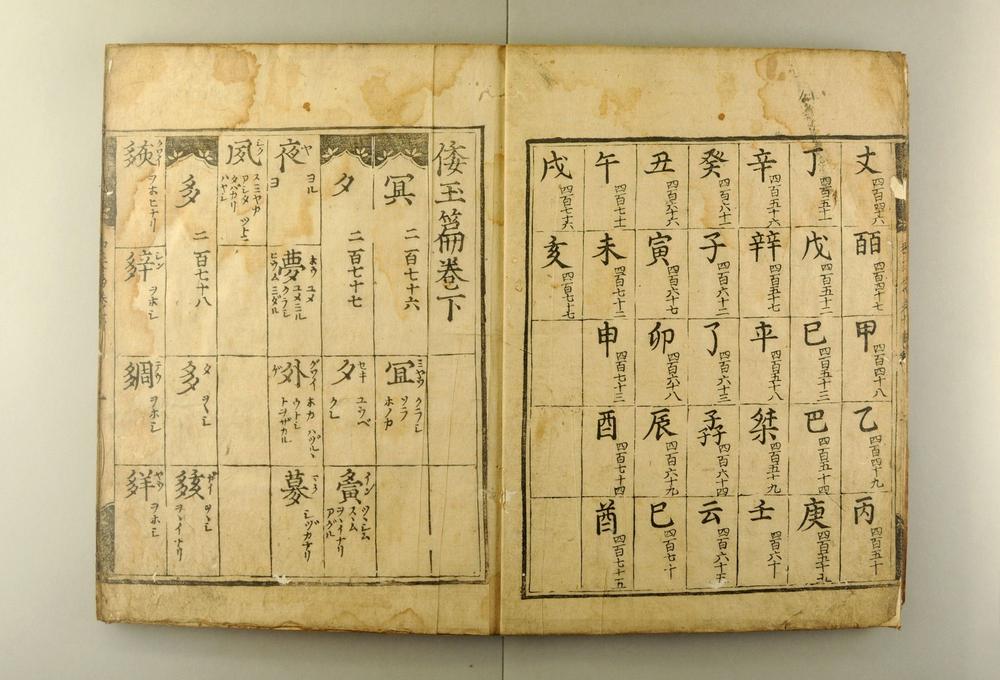 丈 四百四十六
皕 四百四十七
甲 四百四十八
乙 四百四十九
丙 四百五十
丁 四百五十一
戊 四百五十二
巳 四百五十三
巴 四百五十四
庚 四百五十五
辛 四百五十六
辡 四百五十七
平 四百五十八
桀 四百五十九
壬 四百六十
癸 四百六十一
子 四百六十二
了 四百六十三
孨
云 四百六十五
丑 四百六十六
寅 四百六十七
卯 四百六十八
辰 四百六十九
巳 四百七十
午 四百七十一
未 四百七十二
申 四百七十三
酉 四百七十四
酋 四百七十五
戌 四百七十六
亥 四百七十七
倭玉篇巻下
冥 二百七十六
冝 クラシ ソラ ホノカ
夕 二百七十七
夕 セキ ユウベ クレ
夤 イン ツヽシム スヽム ヲハイナリ アグル
夜 ヤ ヨル ヨ
夢 ホウ ユメ ユメミル クラシ
外 グワイ ゲ ホカ ハヅルヽ ウトシ トヲザカル
シヅカナリ
夙 シク スミヤカ アシタ ツトニ ハヤシ
多 二百七十八
多 タ ヲヽシ
ヲホヒナリ
ヲホシ
ヲホシ
ヲホシ